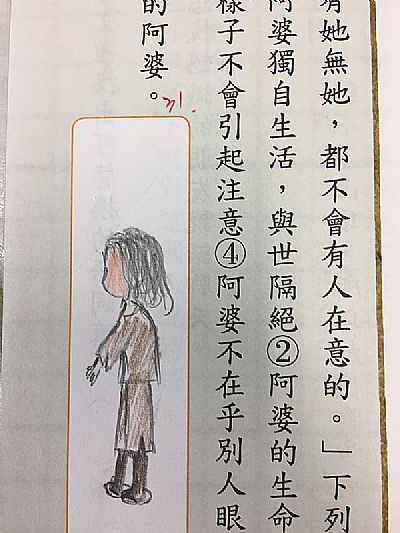 有她無她，都不會有人在意的。」下列
阿婆獨自生活，與世隔絕②阿婆的生命
樣子不會引起注意④阿婆不在乎別人眼
的阿婆。